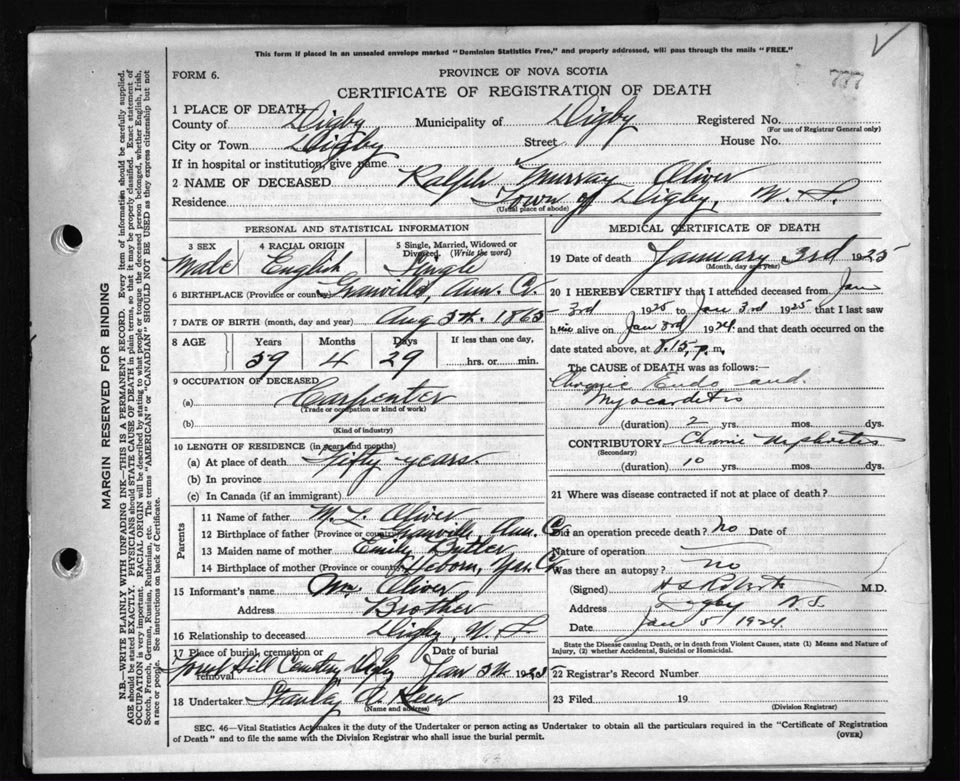 This form if placed in an unsealed envelope marked "Dominion Statistics Free," and properly addressed, will pass through the mails "FREE."
FORM 6.
PROVINCE OF NOVA SCOTIA
777
CERTIFICATE OF REGISTRATION OF DEATH
1 PLACE OF DEATH
County of Digby Municipality of Digby Registered No.
(For use of Registrar General only)
City or Town Digby Street House No.
If in hospital or institution, give name
2 NAME OF DECEASED Ralph Murray Oliver
Residence Town of Digby, N. S.
(Usual place of abode)
PERSONAL AND STATISTICAL INFORMATION
3 SEX 4 RACIAL ORIGIN 5 Single, Married, Widowed or Divorced. (Write the word)
Male English Single
6 BIRTHPLACE (Province or country) Granville, Ann. Co.
7 DATE OF BIRTH (month, day and year) Aug 5th. 1865
8 AGE Years Months Days If less than one day,
59 4 29 hrs. or min.
9 OCCUPATION OF DECEASED
(a) Carpenter
(Trade or occupation or kind of work)
(b)
(Kind of industry)
10 LENGTH OF RESIDENCE (in years and months)
(a) At place of death Fifty years.
(b) In province
(c) In Canada (if an immigrant)
Parents
11 Name of father Oliver
12 Birthplace of father (Province or country) Granville Ann. Co.
13 Maiden name of mother Emily
14 Birthplace of mother (Province or country) Hebron, Yar. Co.
15 Informant's name Wm Oliver
Address Brother
16 Relationship to deceased Digby, N. S.
17 Place of burial, cremation or removal Date of burial
Hill Cemetery Digby Jan 5th 1925
18 Undertaker Stanley
(Name and address)
MEDICAL CERTIFICATE OF DEATH
19 Date of death January 3rd 1925
(Month, day and year)
20 I HEREBY CERTIFY that I attended deceased from Jan
3rd 1925 to Jan 3rd 1925 that I last saw
him alive on Jan 3rd 1924 and that death occurred on
date stated above, at 8.15 p.m.
The CAUSE of DEATH was as follows:—
Chronic Endo and
Myocarditis
(duration) 2 yrs. mos. dys.
CONTRIBUTORY Chronic nephritis
(Secondary)
(duration) 10 yrs. mos. dys.
21 Where was disease contracted if not at place of death?
Did an operation precede death? no Date of
Nature of operation
Was there an autopsy? no
(Signed) M.D.
Address Digby N.S.
Date Jan 5 1924
State the Disease causing Death, or in death from Violent Causes, state (1) Means and Nature of
Injury, (2) whether Accidental, Suicidal or Homicidal.
22 Registrar's Record Number
23 Filed 19
(Division Registrar)
SEC. 46—Vital Statistics Act makes it the duty of the Undertaker or person acting as Undertaker to obtain all the particulars required in the "Certificate of Registration
of Death" and to file the same with the Division Registrar who shall issue the burial permit.
(OVER)
MARGIN RESERVED FOR BINDING
N.B.—WRITE PLAINLY WITH UNFADING INK—THIS IS A PERMANENT RECORD. Every item of information should be carefully supplied.
AGE should be stated EXACTLY. PHYSICIANS should STATE CAUSE OF DEATH in plain terms, so that it may be properly classified. Exact statement of
OCCUPATION is very important. RACIAL ORIGIN will be described by stating to what people or tongue the deceased person belonged, whether English, Irish,
Scotch, French, German, Russian, Ruthenian, etc. The terms "AMERICAN" or "CANADIAN" SHOULD NOT BE USED as they express citizenship but not
a race or people. See instructions on back of Certificate.